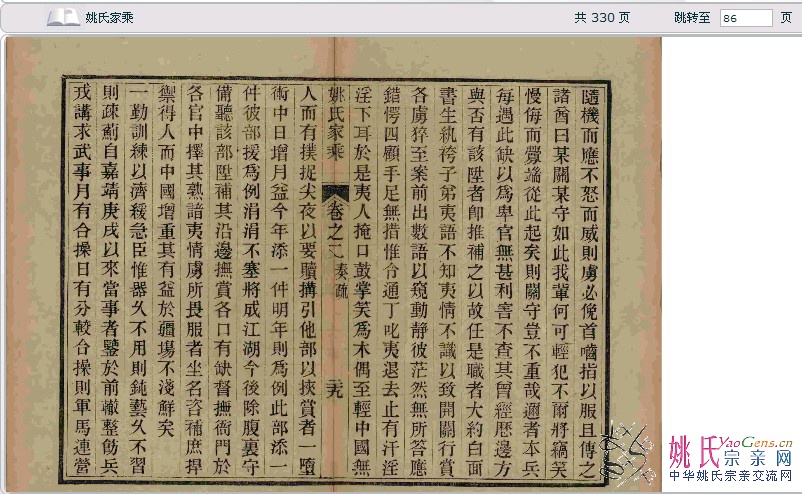 姚氏家乘
共 330 页
跳转至 86 页
隨機而應不怒而威則虜必俛首嚙指以服且傳之
諸酋曰某關某守如此我輩何可輕犯不爾將竊笑
慢侮而釁端從此起矣則關守豈不重哉邇者本兵
每遇此缺以為卑官無甚利害不查其曾經歷邊方
與否有該陞者卽推補之以故任是職者大約白面
書生紈袴子弟夷語不知夷情不識以致開關行賞
各虜猝至案前出數語以窺動靜彼茫然無所答應
錯愕四顧手足無措惟令通丁叱夷退去止有汗淫
淫下耳於是夷人掩口鼓掌笑為木偶至輕中國無
姚氏家乘 卷之 奏疏 二十九
人而有撲捉尖夜以要贖搆引他部以挾賞者一墮
術中日增月益今年添一件明年則為例此部添一
件彼部援為例涓涓不塞將成江湖今後除腹裏守
備聽該部陞補其沿邊撫賞各口有缺督撫衙門於
各官中擇其熟諳夷情虜所畏服者坐名咨補庶捍
禦得人而中國增重其有益於疆場不淺鮮矣
一勤訓練以濟緩急臣惟器久不用則鈍藝久不習
則疎薊自嘉靖庚戌以來當事者鑒於前轍整飭兵
戎講求武事月有合操日有分較合操則軍馬連營
姚氏 YaoGens.cn
宗亲网
中华姚氏宗亲交流网